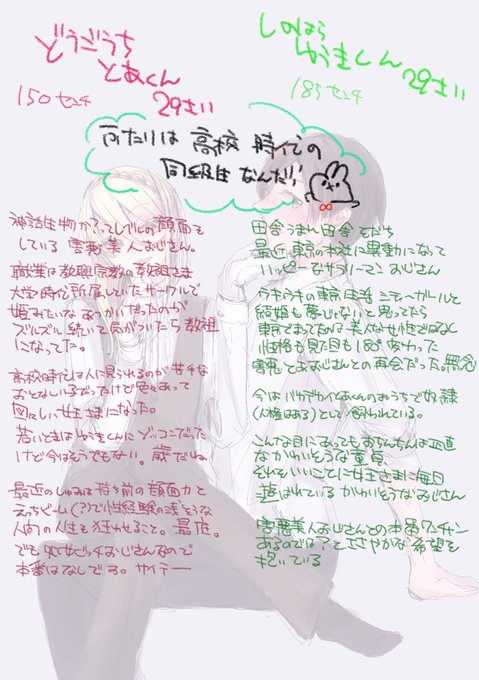 どうごうち
とあくん
29さい
150センチ
しのはら
ゆうきくん
29さい
185センチ
ふたりは 高校 時代の
同級生 なんだ!!
神話生物か?ってレベルの顔面を
している 雪髪美人おじさん。
職業は新興宗教の教祖さま
大学時代所属していたサークルで
姫みたいな あつかいだったのが
ズルズル続いて気がついたら教祖
になってた。
高校時代は人に見られるのが苦手な
おとなしい子だったけど色々あって
図々しい女王さまになった。
若いときはゆうきくんにゾッコンだった
けど今はそうでもない。歳だしね
最近のしゅみは持ち前の顔面力と
えっちどーし(?)で性経験の浅そうな
人間の人生を狂わせること。最低。
でも処女ビッチおじさんなので
本番はなしです。サイテー
田舎うまれ田舎そだち
最近東京の本社に異動になって
ハッピーなサラリーマンおじさん
ウキウキの東京生活 シティーガールと
結婚も夢じゃないと思ってたら
東京でまってたのは美人な女性ではなく
性格も見た目も180°変わった
とあおじさんとの再会だった。無念
今はバカデカイとあくんのおうちで奴隷
(人権はある)として飼われている。
こんな目にあってもおちんちんは正直
なかわいそうな童貞
それをいいことに女王さまに毎日
遊ばれているかわいそうなおじさん
雪髪美人おじさんとの本番ワンチャン
あるのでは?とささやかな希望を
抱いている